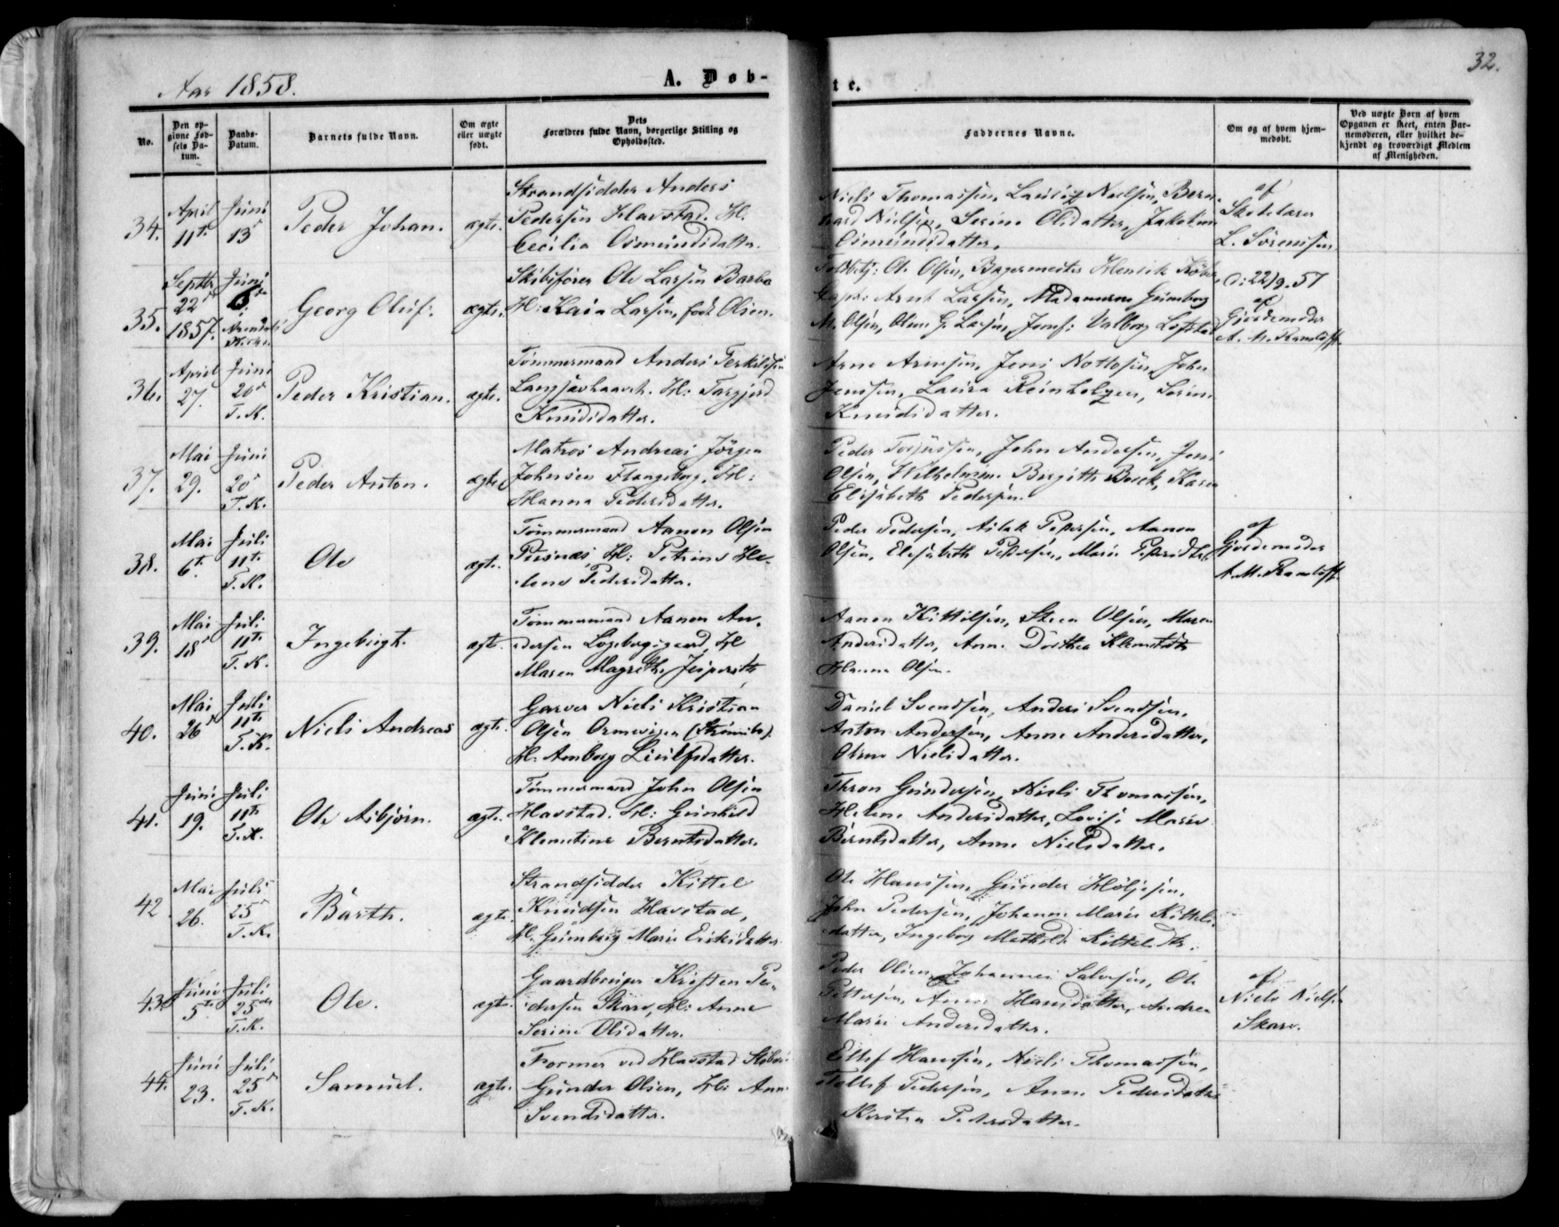 Aar 1858.
A. Døb-
te.
32.
No.
Den op-
givne Fød-
sels Da-
tum.
Daabs-
Datum.
Barnets fulde Navn.
Om ægte
eller uægte
født.
Dets
Forældres fulde Navn, borgerlige Stilling og
Opholdssted.
Faddernes Navne.
Om og af hvem hjem-
medøbt.
Ved uægte Børn af hvem
Opgaven er skeet, enten Bar-
nemoderen, eller hvilket be-
kjendt og troværdigt Medlem
af Menigheden.
34.
April
11te
Juni
13
Peder Johan.
ægte.
Strandsidder Anders
Pedersen Havstad. H:
Cecilia Osmundsdatter.
Niels Thomassen, Nielsen, Bern-
hard Nielsen, Serine Olsdatter,
Osmundsdatter.
af
Skolelærer
L. Sörensen
35.
Septbr
22
1857.
Juni
6
Arendals
Kirke.
Georg Oluf.
ægte.
Skibsfører Ole Larsen Barbo
H: Kaia Larsen, født Olsen.
Ole Olsen, Bagermester Henrik
Arent Larsen, Madamerne Gunborg
M. Olsen, Olum G. Larsen, Jomf: Valborg
D: 22/9. 57
af
Gjordemoder
A. M. Ramleff.
36.
April
27.
Juni
20
T. K.
Peder Kristian.
ægte.
Tömmermand Anders Terkelsen
H: Torgjerd
Knudsdatter.
Arne Arnesen, Jens Nottosen, John
Jenssen, Laura Reinholzen, Serine
Knudsdatter.
37.
Mai
29.
Juni
20
T. K.
Peder Anton.
ægte
Matros Andreas Jörgen
Johnsen Flangeborg. H:
Hanna Pedersdatter.
Peder John Andersen, Jens
Olsen, Wilhelmine Birgitte Beck, Karen
Elisabeth Pedersen.
38.
Mai
6te
Juli
11te
T. K.
Ole
ægte.
Tömmermand Aanon Olsen
H: Petrine He-
lene Pedersdatter.
Peder Pedersen, Aslak Pettersen, Aanon
Olsen, Elisabeth Pettersen, Maria
af
Gjordemoder
A. M. Ramleff.
39.
Mai
18
Juli
11te
T. K.
Ingeborgt.
ægt.
Tömmermand Aanon An-
dersen Longborgsgaard, H:
Maren Magrethe Jespersdtr
Aanon Kittilsen, Steen Olsen, Maren
Andersdatter, Anne Dorthea
Hanna Olsen.
40.
Mai
26
Juli
11te
T. K.
Niels Andreas
ægte.
Garver Niels Kristian
Olsen Ormevigen (Strömsbo).
H: Amborg Leulfsdatter.
Daniel Svendsen, Anders Svendsen,
Anton Andersen, Anne Andersdatter,
Nielsdatter.
41.
Juni
19.
Juli
11te
T. K.
Ole Asbjörn.
ægte.
Tömmermand John Olsen
Havstad. H: Gunhild
Klementine Berntsdatter.
Thron Gundersen, Niels Thomassen,
Helene Andersdatter, Lovise Marie
Berntsdatter, Anne Nielsdatter.
42
Mai
26.
Juli
25
T. K.
Barth.
ægte.
Strandsidder Kittel
Knudsen Havstad,
H: Gunborg Marie Eriksdatter
Ole Hanssen, Gunder Höljesen,
John Pedersen, Johanne Marie Kittels-
datter, Ingeborg Mathilde Kittelsdtr.
43.
Juni
5te
Juli
25
T. K.
Ole.
ægte.
Gaardbruger Kristen Pe-
dersen Skare, H: Anne
Serine Olsdatter.
Peder Olsen, Johannes Salvesen, Ole
Pettersen, Anne Hansdatter, Andrea
Marie Andersdatter.
af
Niels Nielsen
Skare.
44.
Juni
23.
Juli
25
T. K.
Samuel.
ægte.
Former ved Havstad Støberi
Gunder Olsen, H: Anne
Svendsdatter.
Ellef Hansen, Niels Thomassen,
Tellef Pedersen, Anne Pedersdatter
Kirsten Pedersdatter.